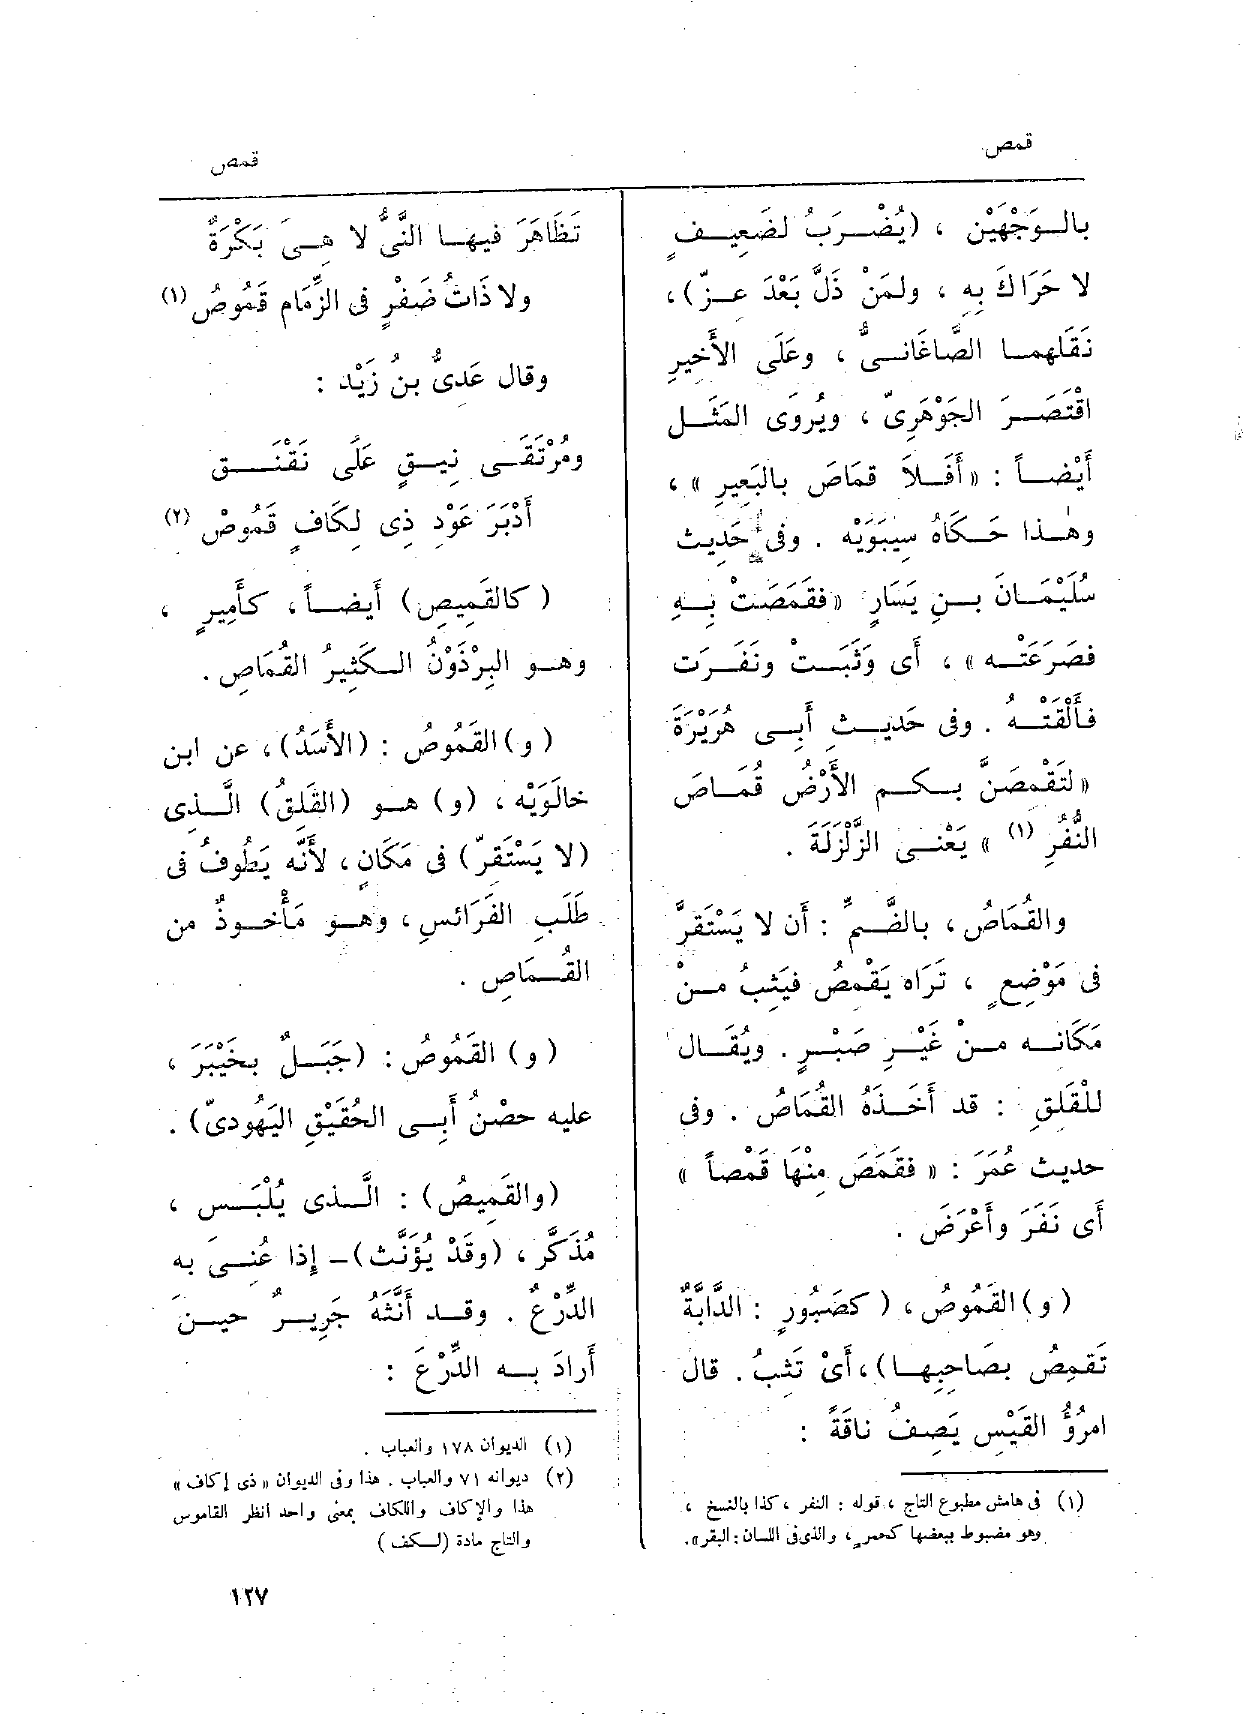 قمص
قمص
بالـوَجْهَيْن ، (يُضْـرَبُ لضَعِيـفٍ
لا حَرَاكَ بِهِ ، ولمَنْ ذَلَّ بَعْدَ عـزّ) ،
نَقَلَهمـا الصَّاغَانـىُّ ، وعَلَى الأَخيرِ
اقْتَصَـرَ الجَوْهَرِىّ ، ويُروَى المَثَـل
أَيْضـاً : «أَفَـلاَ قِمَاصَ بالبَعِيرِ» ،
وهٰـذا حَـكَاهُ سِيبَوَيْه . وفى حَدِيث
سُلَيْمَـانَ بـنِ يَسَارٍ «فقَمَصَتْ بِـهِ
فصَرَعَتْـه» ، أَى وَثَبَـتْ ونَفَـرَت
فأَلْقَتْـهُ . وفى حَديـثِ أَبِـى هُرَيْرَةَ
«لتَقْمِصَنَّ بـكـم الأَرْضُ قُمَـاصَ
النُّفُرِ (١) » يَعْنـى الزَّلْزَلَةَ .
والقُمَاصُ ، بالضَّـمِّ : أَن لا يَسْتَقِرَّ
فى مَوْضِعٍ ، تَرَاه يَقْمِصُ فيَثِبُ مـنْ
مَكَانـه مـنْ غَيْـرِ صَبْـرٍ . ويُقَـال
للْقَلِقِ : قد أَخَـذَهُ القُمَاصُ . وفى
حديث عُمَرَ : «فقَمَصَ مِنْهَا قَمْصاً»
أَى نَفَرَ وأَعْرَضَ .
(و) القَمُوصُ ، (كصَبُورٍ : الدَّابَّةُ
تَقْمِصُ بصَاحِبِهـا) ، أَىْ تَثِبُ . قال
امرُؤُ القَيْسِ يَصِفُ نَاقَةً :
(١) فى هامش مطبوع التاج ، قوله : النفر ، كذا بالنسخ ،
وهو مضبوط ببعضها كحمر ، والذى فى اللسان : البقر».
تَظَاهَرَ فيهـا النَّىُّ لا هِـىَ بَكْرَةٌ
ولا ذَاتُ ضَفْرٍ فى الزِّمَامِ قَمُوصُ (١)
وقال عَدِىُّ بنُ زَيْد :
ومُرْتَقَـى نِيـقٍ عَلَى نَقْنَـقٍ
أَدْبَرَ عَوْدِ ذِى لِكَافٍ قَمُوصْ (٢)
(كالقَمِيصِ) أَيضـاً ، كأَمِيرٍ ،
وهـو البِرْذَوْنُ الـكَثِيرُ القُمَاصِ .
(و) القَمُوصُ : (الأَسَدُ) ، عن ابن
خالَوَيْه ، (و) هـو (القَلِقُ) الَّـذى
(لا يَسْتَقِرّ) فى مَكَانٍ ، لأَنَّه يَطُوفُ فى
طَلَبِ الفَرَائسِ ، وهـو مَأْخـوذٌ من
القُـمَاصِ .
(و) القَمُوصُ : (جَبَـلٌ بـخَيْبَرَ ،
عليه حصْنُ أَبِـى الحُقَيْقِ اليَهُودىّ) .
(والقَمِيصُ) : الَّـذى يُلْبَـس ،
مُذَكَّر ، (وقَدْ يُؤَنَّث) – إِذا عُنِـىَ به
الدِّرْعُ . وقـد أَنَّثَهُ جَرِيـرٌ حيـنَ
أَرادَ بـه الدِّرْعَ :
(١) الديوان ١٧٨ والعباب .
(٢) ديوانه ٧١ والعباب . هذا وفى الديوان «ذى إكاف»
هذا والإكاف واللكاف بمعنى واحد انظر القاموس
والتاج مادة (لـكف)
١٢٧